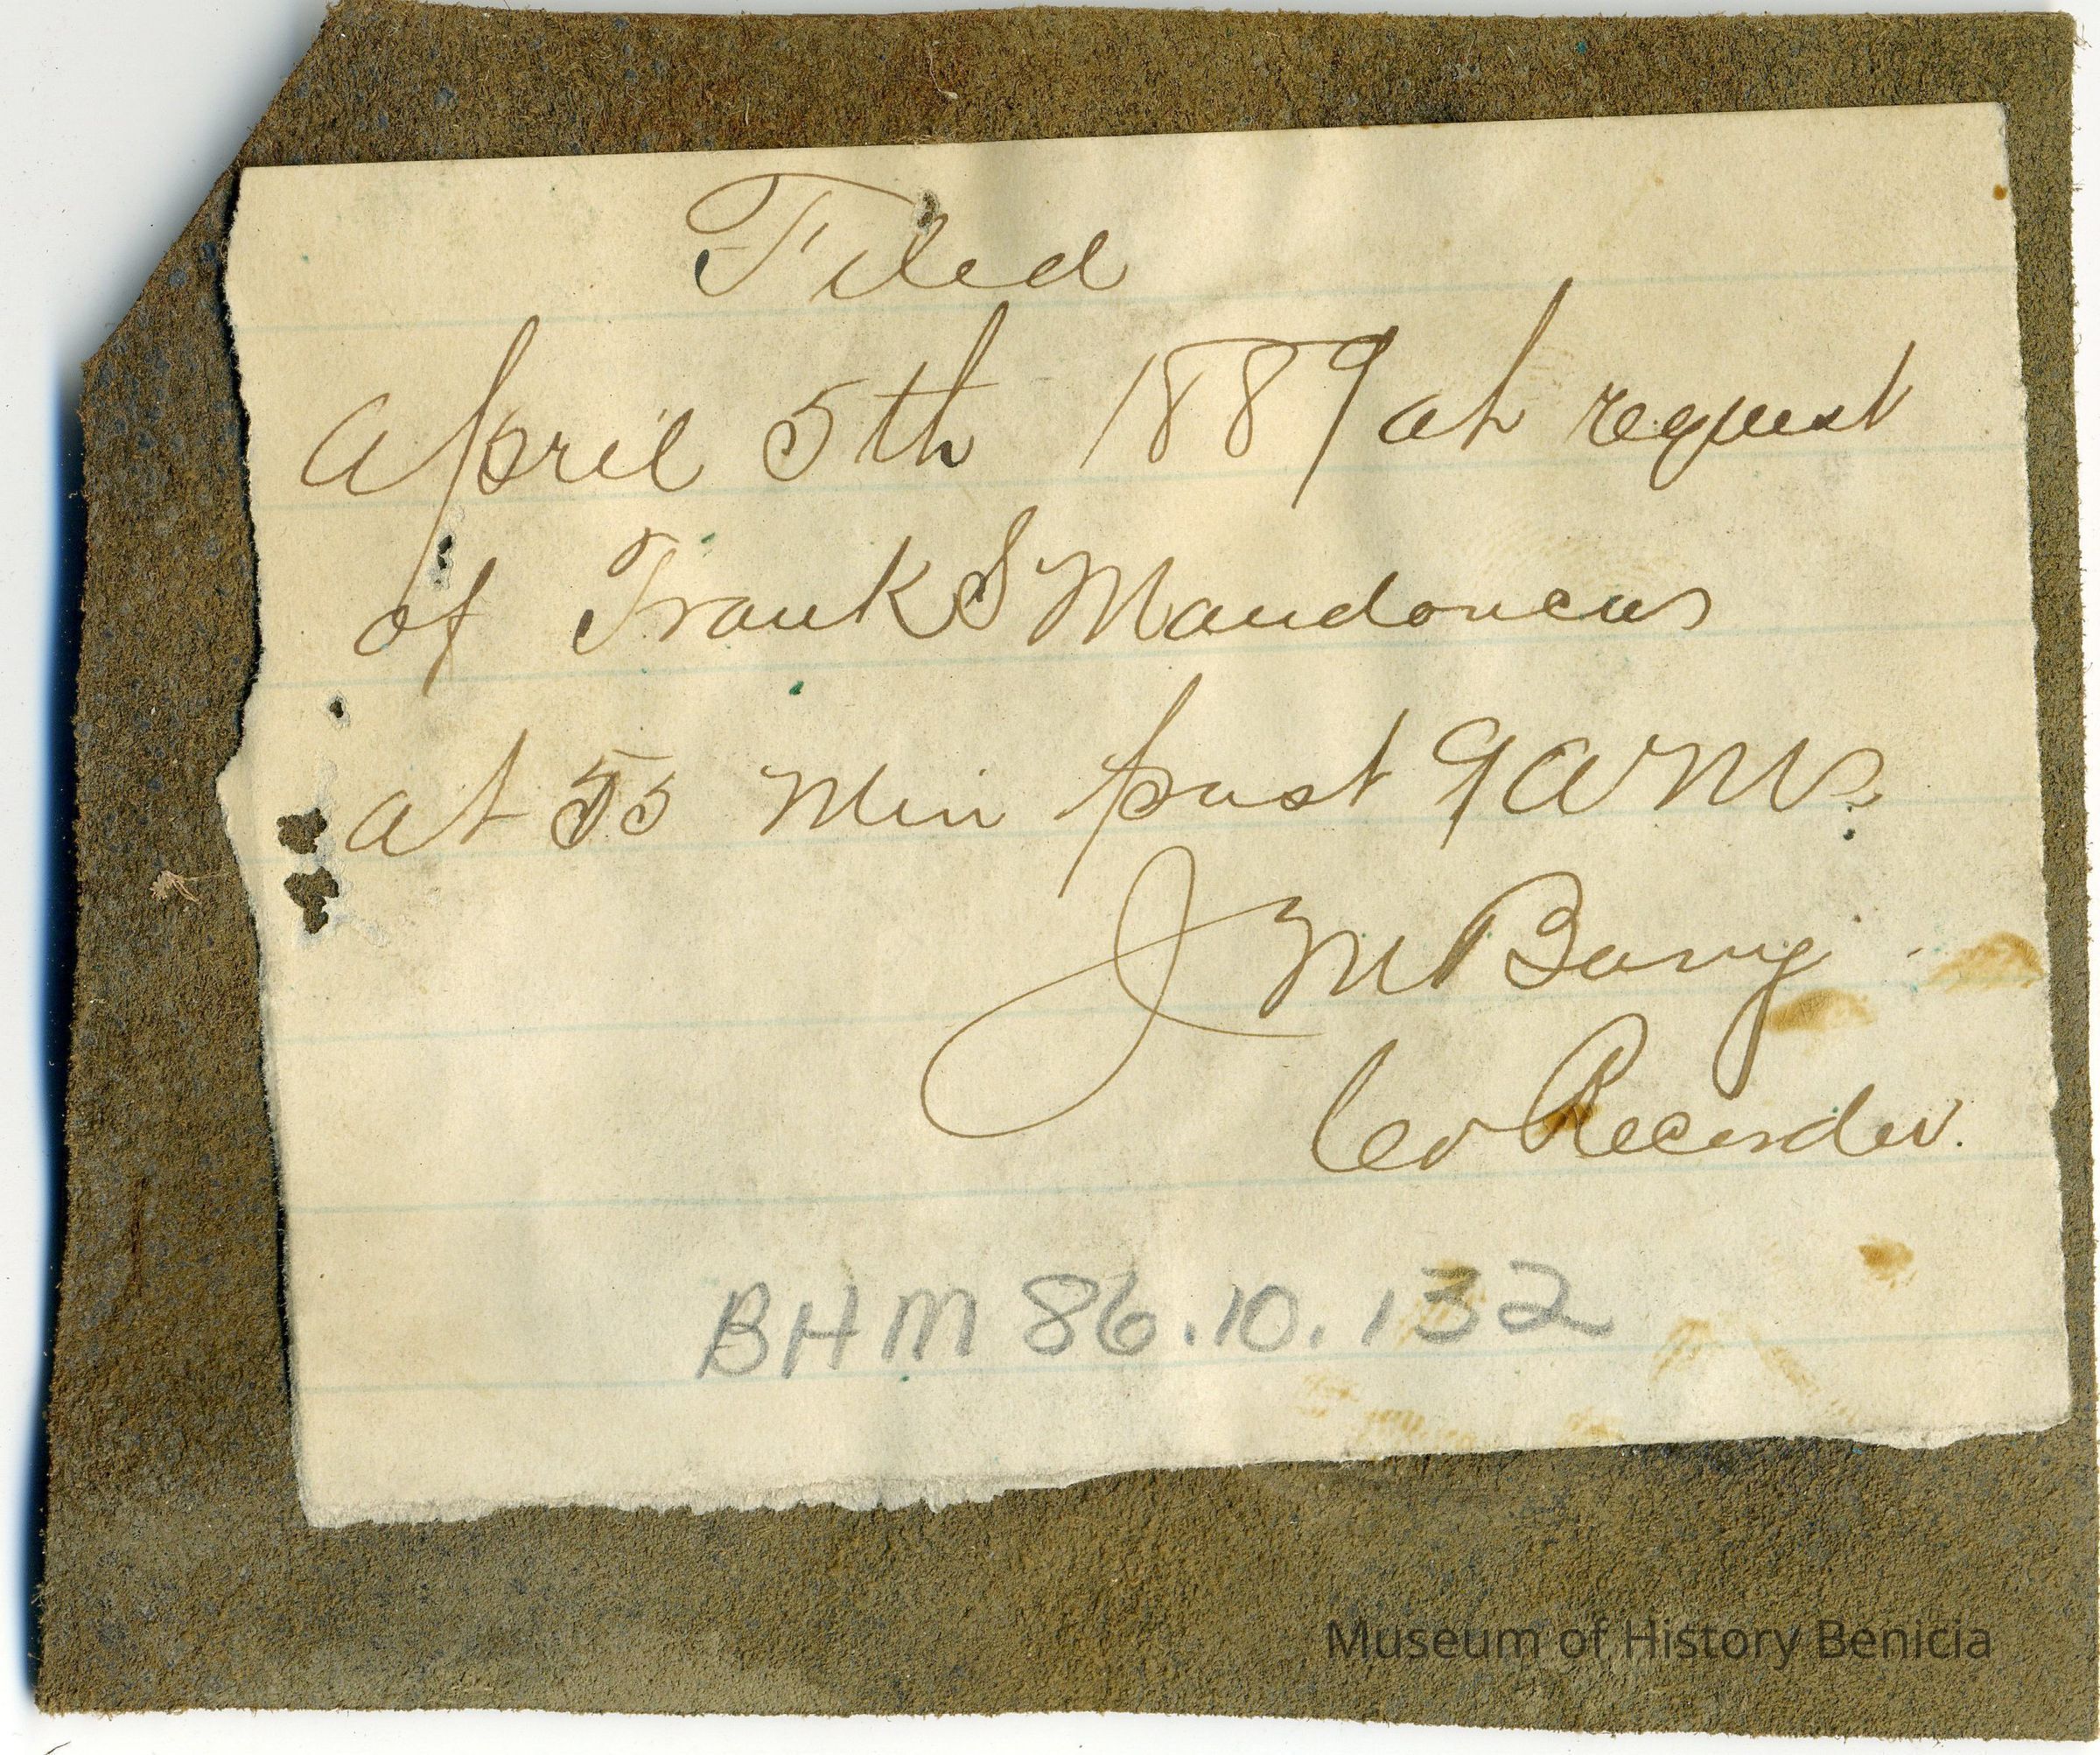 Filed
April 5th 1889 at request
of Frank S Mandoncas
at 55 Min past 9 A M.
J M Barry
Co Recorder.
BHM 86.10.132
Museum of History Benicia